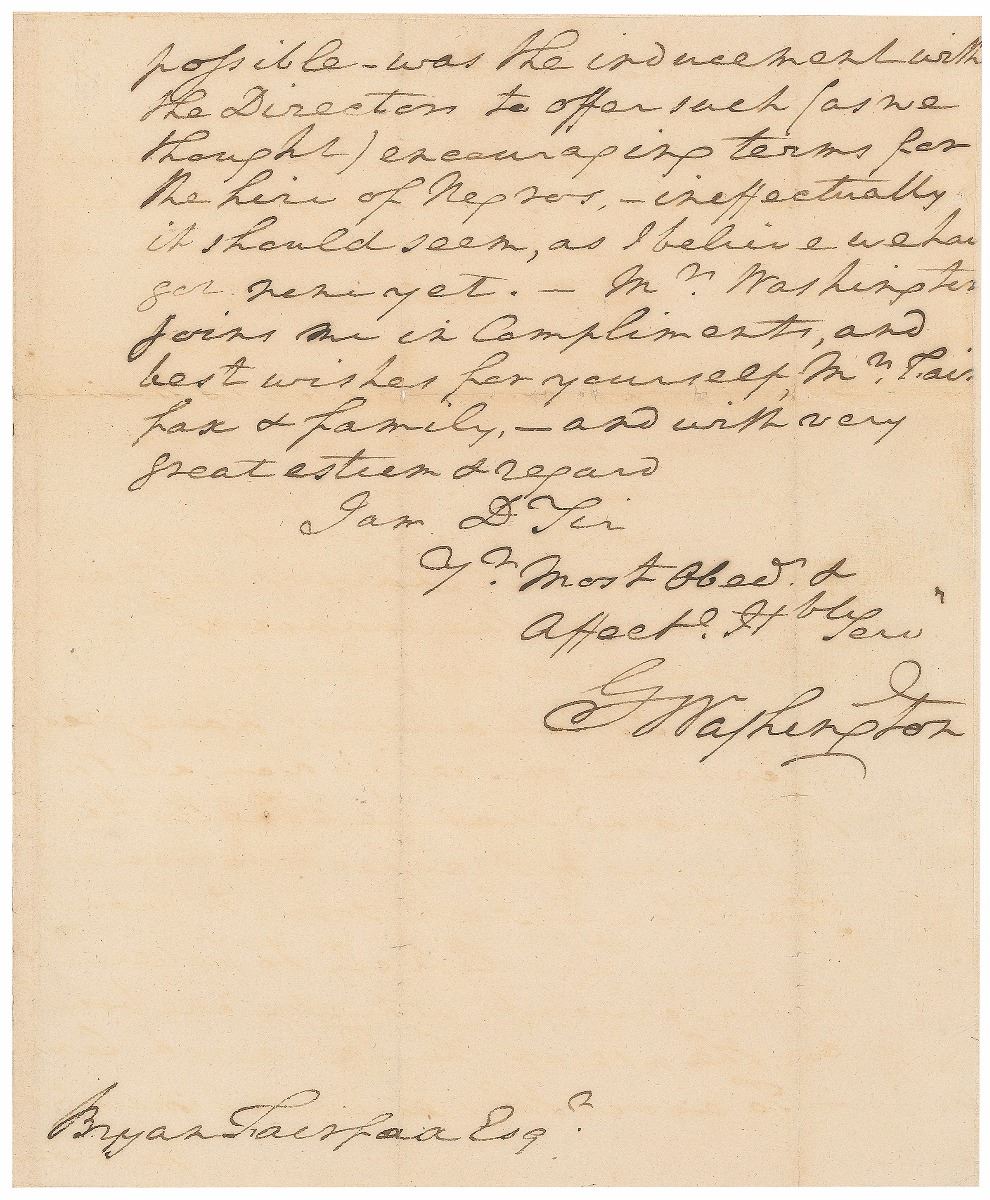 possible - was the inducement with
the Directors to offer such (as we
thought) encouraging terms for
the hire of Negros, - ineffectually
it should seem, as I believe we hav
got none yet. - Mrs. Washington
joins me in Compliments, and
best wishes for yourself, Mrs. Fair
fax & family, - and with very
great esteem & regard
I am Dr Sir
Yr. Most Obedt. &
Affecte. Hble Serv
GWashington
Bryan Fairfax Esqr.